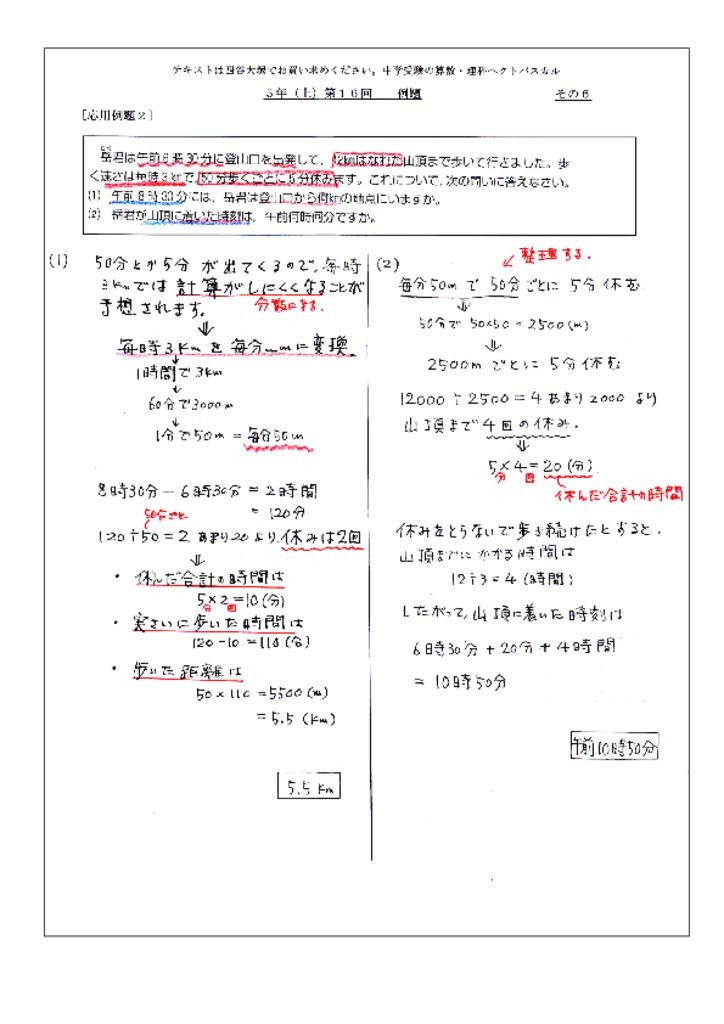 テキストは四谷大塚でお買い求めください。中学受験の算数・理科ヘクトパスカル
5年(上)第16回 例題 その6
[応用例題2]
がく
岳君は午前6時30分に登山口を出発して、12kmはなれた山頂まで歩いて行きました。歩
く速さは毎時3kmで、50分歩くごとに5分休みます。これについて、次の問いに答えなさい。
(1) 午前8時30分には、岳君は登山口から何kmの地点にいますか。
(2) 岳君が山頂に着いた時刻は、午前何時何分ですか。
(1) 50分とか5分が出てくるので、毎時
3kmでは計算がしにくくなることが
予想されます。 分数になる.
⇓
毎時3kmを毎分…mに変換
↓
1時間で3km
↓
60分で3000m
↓
1分で50m = 毎分50m
8時30分 − 6時30分 = 2時間
= 120分
50分ごと
120÷50=2 あまり20より、休みは2回
⇓
・ 休んだ合計の時間は
5×2=10(分)
分 回
・ 実さいに歩いた時間は
120−10=110(分)
・ 歩いた距離は
50×110=5500(m)
=5.5(km)
5.5km
(2) 整理する.
毎分50mで50分ごとに5分休む
⇓
50分で50×50=2500(m)
⇓
2500mごとに5分休む
12000÷2500=4あまり2000より
山頂まで4回の休み.
⇓
5×4=20(分)
分 回
休んだ合計の時間
休みをとらないで歩き続けたとすると.
山頂までにかかる時間は
12÷3=4(時間)
したがって、山頂に着いた時刻は
6時30分+20分+4時間
=10時50分
午前10時50分